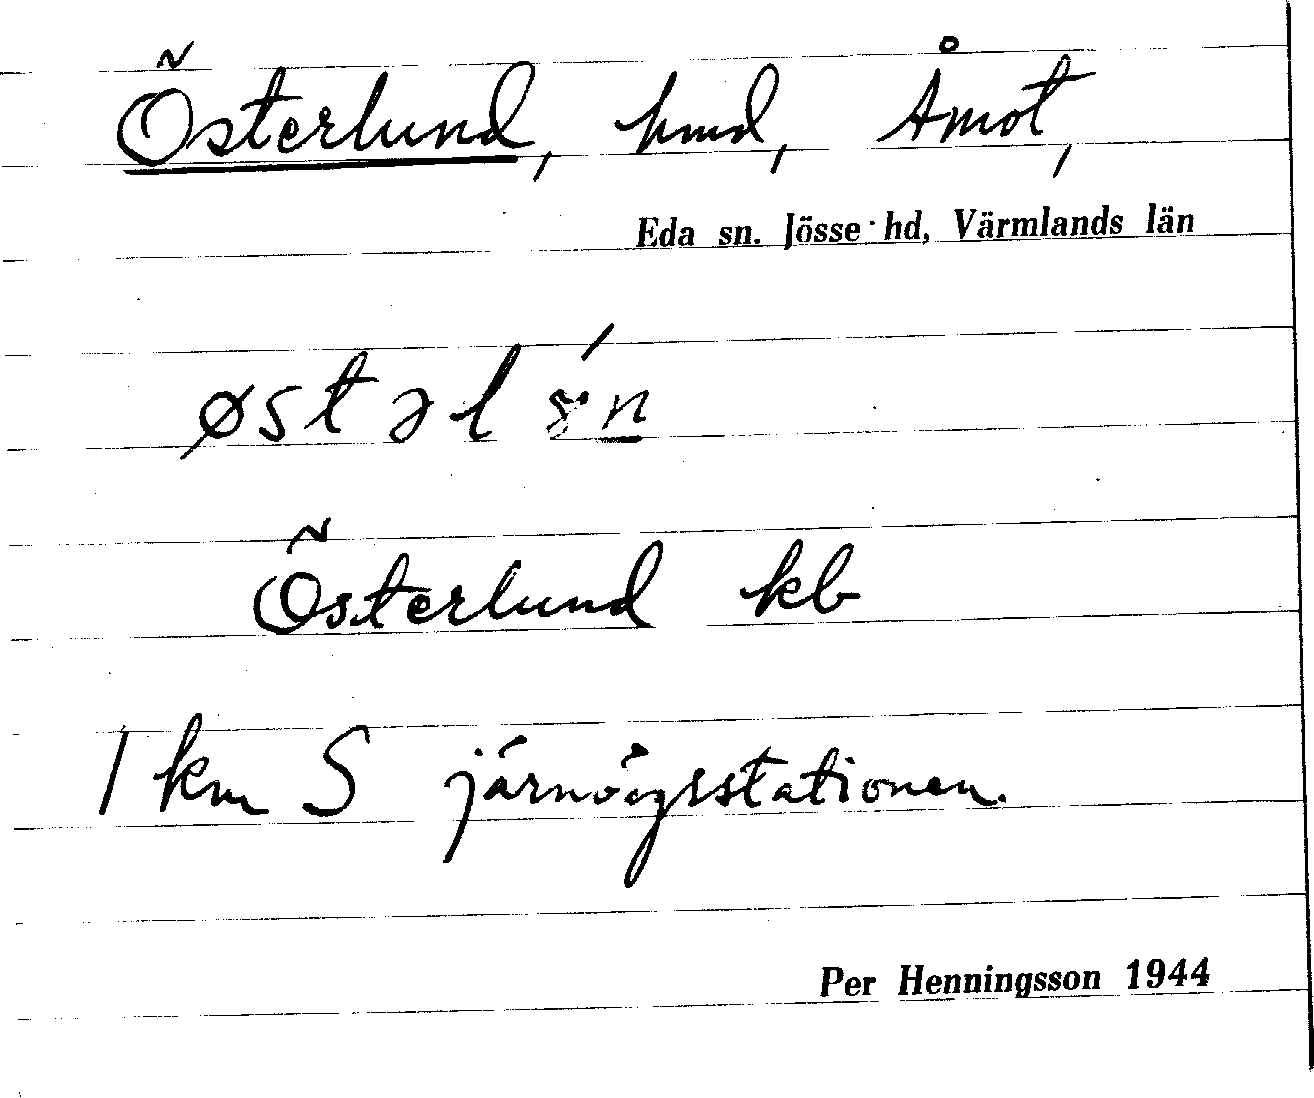 Österlund, hmd, Åmot,
Eda sn. Jösse hd, Värmlands län
Österlund kb
1 km S järnvägsstationen.
Per Henningsson 1944